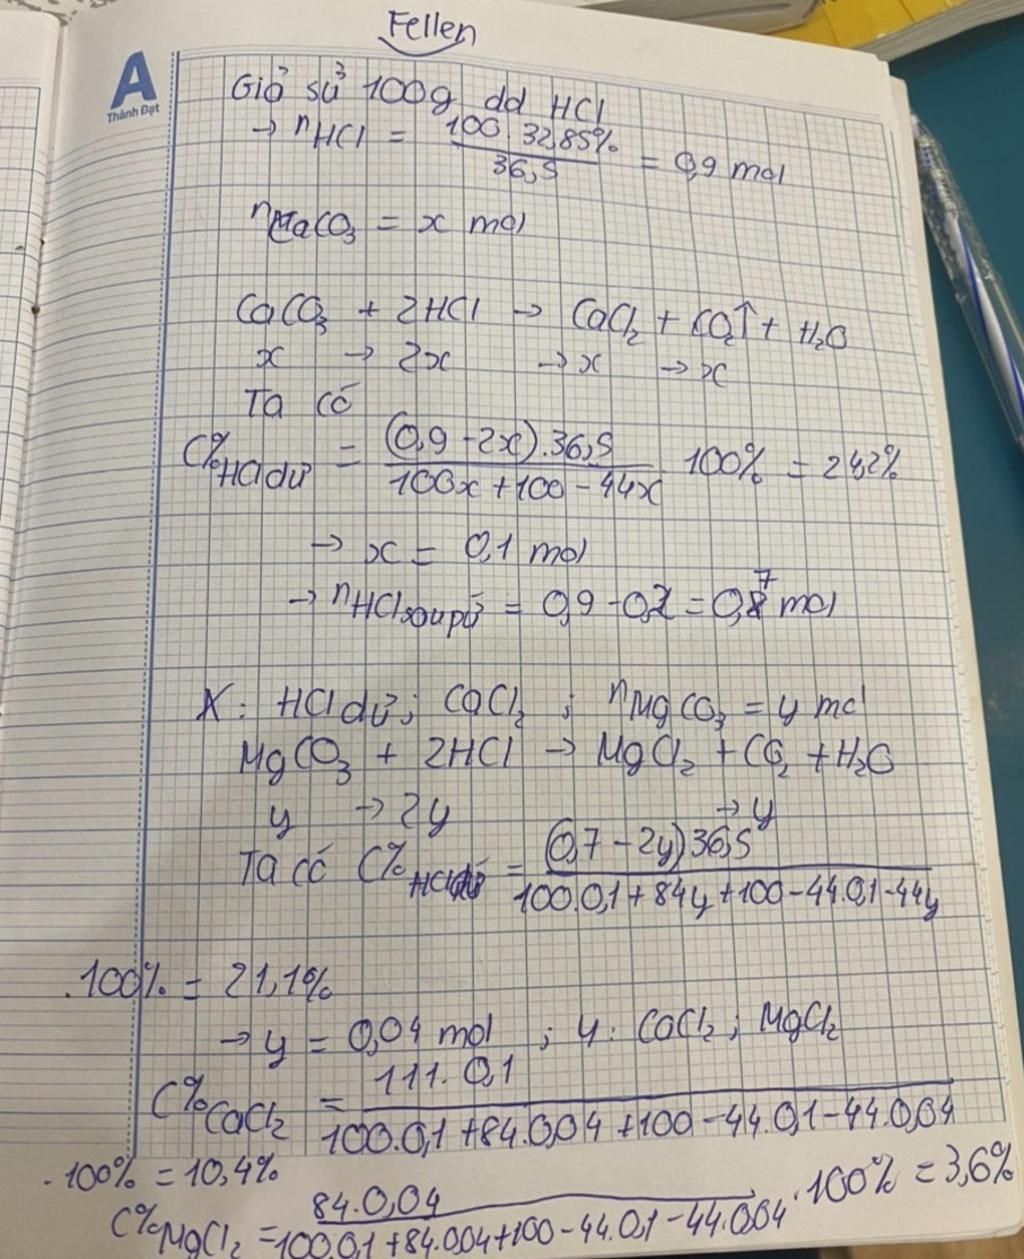 Fellen
A
Thành Đạt
Giả sử 100g dd HCl
→ nHCl = 100.32,85% / 36,5 = 0,9 mol
nCaCO3 = x mol
CaCO3 + 2HCl → CaCl2 + CO2↑ + H2O
x → 2x → x → x
Ta có
C%HCl dư = (0,9 - 2x).36,5 / 100x + 100 - 44x 100% = 24,2%
→ x = 0,1 mol
→ nHCl sau pứ = 0,9 - 0,2 = 0,7 mol
X: HCl dư; CaCl2; nMgCO3 = y mol
MgCO3 + 2HCl → MgCl2 + CO2 + H2O
y → 2y → y
Ta có C%HCl dư = (0,7 - 2y)36,5 / 100.0,1 + 84y + 100 - 44.0,1 - 44y
.100% = 21,1%
→ y = 0,04 mol ; y: CaCl2; MgCl2
C%CaCl2 = 111.0,1 / 100.0,1 + 84.0,04 + 100 - 44.0,1 - 44.0,04
.100% = 10,4%
C%MgCl2 = 84.0,04 / 100.0,1 + 84.0,04 + 100 - 44.0,1 - 44.0,04 .100% = 3,6%